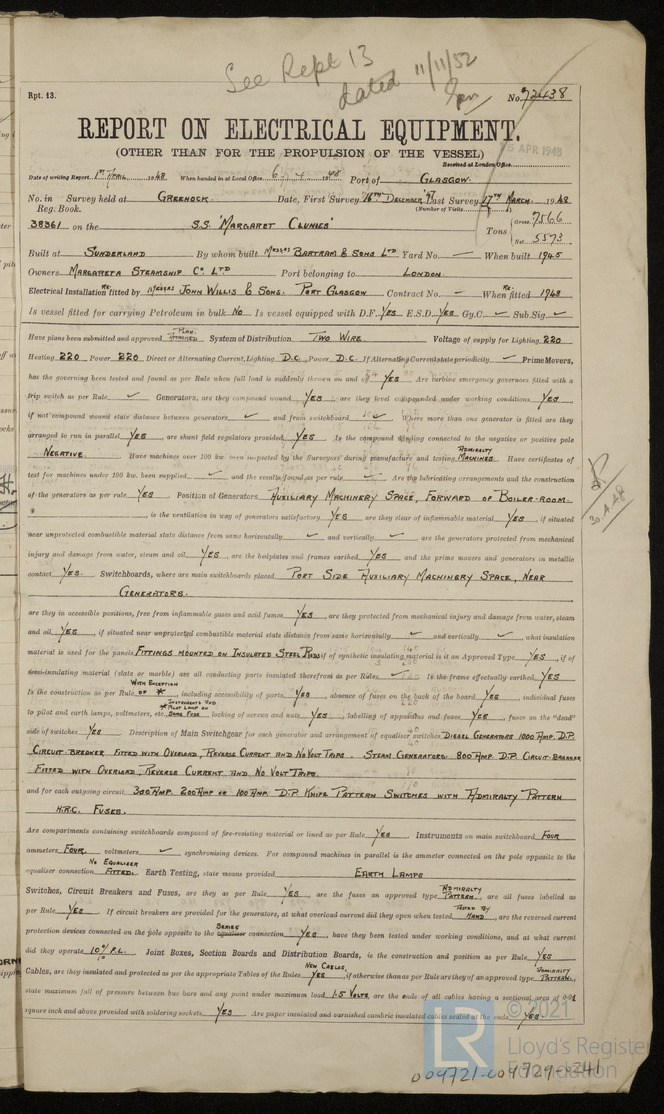 See Rept 13
dated 11/11/52
Rpt. 13.
No. 72438
REPORT ON ELECTRICAL EQUIPMENT.
(OTHER THAN FOR THE PROPULSION OF THE VESSEL)
APR 1948
Received at London Office
Date of writing Report 1st April 1948 When handed in at Local Office 6 - 4 - 1948 Port of GLASGOW.
No. in Survey held at GREENOCK. Date, First Survey 16TH DECEMBER '47 Last Survey 17TH MARCH. 1948
Reg. Book. (Number of Visits
38361 on the S.S. 'MARGARET CLUNIES' Tons { Gross 7566
Net 5573
Built at SUNDERLAND By whom built MESSRS BARTRAM & SONS LTD Yard No. — When built 1945
Owners MARGARETA STEAMSHIP Co. LTD Port belonging to LONDON.
Electrical Installation RE- fitted by MESSRS JOHN WILLIS & SONS. PORT GLASGOW Contract No. — When RE- fitted 1948
Is vessel fitted for carrying Petroleum in bulk No Is vessel equipped with D.F. YES E.S.D. YES Gy.C. ✓ Sub.Sig. ✓
Have plans been submitted and approved PLAN ATTACHED System of Distribution TWO WIRE Voltage of supply for Lighting 220
Heating 220 Power 220 Direct or Alternating Current, Lighting D.C. Power D.C. If Alternating Current state periodicity ✓ Prime Movers,
has the governing been tested and found as per Rule when full load is suddenly thrown on and off YES Are turbine emergency governors fitted with a
trip switch as per Rule ✓ Generators, are they compound wound YES, are they level compounded under working conditions YES,
if not compound wound state distance between generators ✓ and from switchboard ✓ Where more than one generator is fitted are they
arranged to run in parallel YES, are shunt field regulators provided YES Is the compound winding connected to the negative or positive pole
NEGATIVE. Have machines over 100 kw. been inspected by the Surveyors during manufacture and testing ADMIRALTY MACHINES Have certificates of
test for machines under 100 kw. been supplied ✓ and the results found as per rule ✓ Are the lubricating arrangements and the construction
of the generators as per rule YES. Position of Generators AUXILIARY MACHINERY SPACE, FORWARD OF BOILER-ROOM.
, is the ventilation in way of generators satisfactory YES, are they clear of inflammable material YES, if situated
near unprotected combustible material state distance from same horizontally ✓ and vertically ✓, are the generators protected from mechanical
injury and damage from water, steam and oil YES, are the bedplates and frames earthed YES and the prime movers and generators in metallic
contact YES. Switchboards, where are main switchboards placed PORT SIDE AUXILIARY MACHINERY SPACE, NEAR
GENERATORS.
30.4.48
are they in accessible positions, free from inflammable gases and acid fumes YES, are they protected from mechanical injury and damage from water, steam
and oil YES, if situated near unprotected combustible material state distance from same horizontally ✓ and vertically ✓, what insulation
material is used for the panels FITTINGS MOUNTED ON INSULATED STEEL RODS if of synthetic insulating material is it an Approved Type YES, if of
semi-insulating material (slate or marble) are all conducting parts insulated therefrom as per Rules ✓ Is the frame effectually earthed YES
Is the construction as per Rule WITH EXCEPTION OF *, including accessibility of parts YES, absence of fuses on the back of the board YES, individual fuses
to pilot and earth lamps, voltmeters, etc. * INSTRUMENTS AND PILOT LAMP ON SAME FUSE, locking of screws and nuts YES, labelling of apparatus and fuses YES, fuses on the "dead"
side of switches YES. Description of Main Switchgear for each generator and arrangement of equaliser switches DIESEL GENERATORS 1000 AMP. D.P.
CIRCUIT-BREAKER FITTED WITH OVERLOAD, REVERSE CURRENT AND NO VOLT TRIPS. STEAM GENERATORS. 800 AMP. D.P. CIRCUIT-BREAKER
FITTED WITH OVERLOAD, REVERSE CURRENT AND NO VOLT TRIPS.
and for each outgoing circuit 300 AMP. 200 AMP OR 100 AMP. D.P. KNIFE PATTERN SWITCHES WITH ADMIRALTY PATTERN
H.R.C. FUSES.
Are compartments containing switchboards composed of fire-resisting material or lined as per Rule YES. Instruments on main switchboard FOUR
ammeters FOUR. voltmeters ✓ synchronising devices. For compound machines in parallel is the ammeter connected on the pole opposite to the
equaliser connection NO EQUALISER FITTED. Earth Testing, state means provided EARTH LAMPS
Switches, Circuit Breakers and Fuses, are they as per Rule YES, are the fuses an approved type ADMIRALTY PATTERN, are all fuses labelled as
per Rule YES If circuit breakers are provided for the generators, at what overload current did they open when tested TESTED BY HAND, are the reversed current
protection devices connected on the pole opposite to the equaliser SERIES connection YES, have they been tested under working conditions, and at what current
did they operate 10% F.L. Joint Boxes, Section Boards and Distribution Boards, is the construction and position as per Rule YES
Cables, are they insulated and protected as per the appropriate Tables of the Rules NEW CABLES, YES, if otherwise than as per Rule are they of an approved type ADMIRALTY PATTERN.
state maximum fall of pressure between bus bars and any point under maximum load 1.5 VOLTS, are the ends of all cables having a sectional area of 0·01
square inch and above provided with soldering sockets YES. Are paper insulated and varnished cambric insulated cables sealed at the ends YES.
© 2021
LR
Lloyd's Register
Foundation
009721-009729-0241